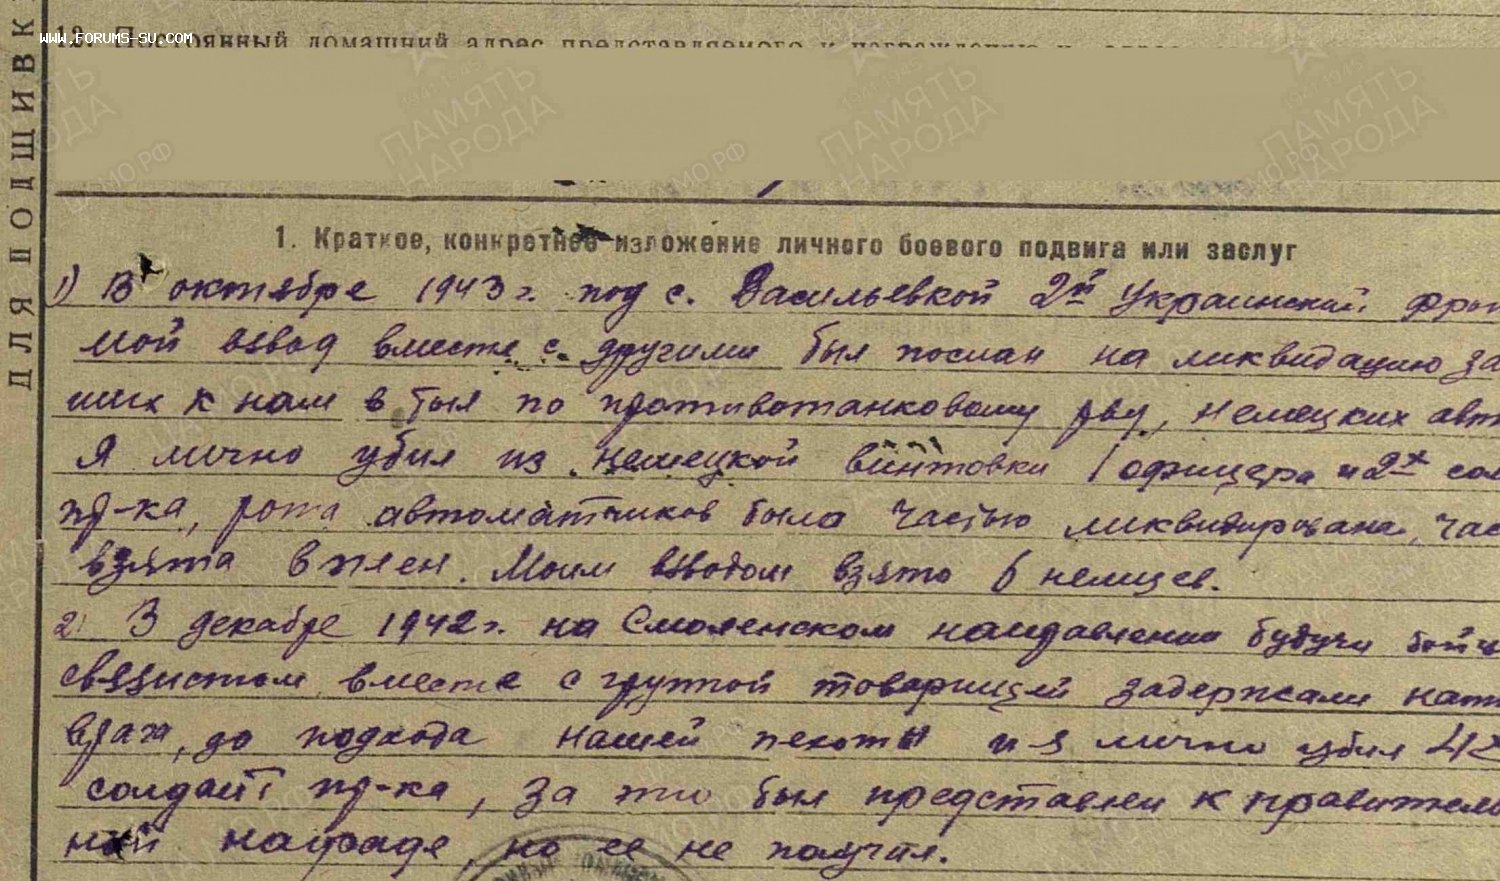 www.forums-su.com
12. Постоянный домашний адрес представляемого к награждению и адрес
ДЛЯ ПОДШИВК
1. Краткое, конкретное изложение личного боевого подвига или заслуг
1) В октябре 1943 г. под с. Васильевкой 2й Украинский фрон
мой взвод вместе с другими был послан на ликвидацию за
ших к нам в тыл по противотанковому рву, немецких авт
Я лично убил из немецкой винтовки 1 офицера и 2х сол
пр-ка, рота автоматчиков была частью ликвидирована, час
взята в плен. Моим взводом взято 6 немцев.
2) В декабре 1942 г. на Смоленском направлении будучи бойц
связистом вместе с группой товарищей задержали нат
врага, до подхода нашей пехоты и я лично убил 4х
солдат пр-ка, за это был представлен к правительс
ной награде, но ее не получил.
ПАМЯТЬ НАРОДА
1941-1945
ПАМЯТЬ НАРОДА
1941-1945
ПАМЯТЬ НАРОДА
1941-1945